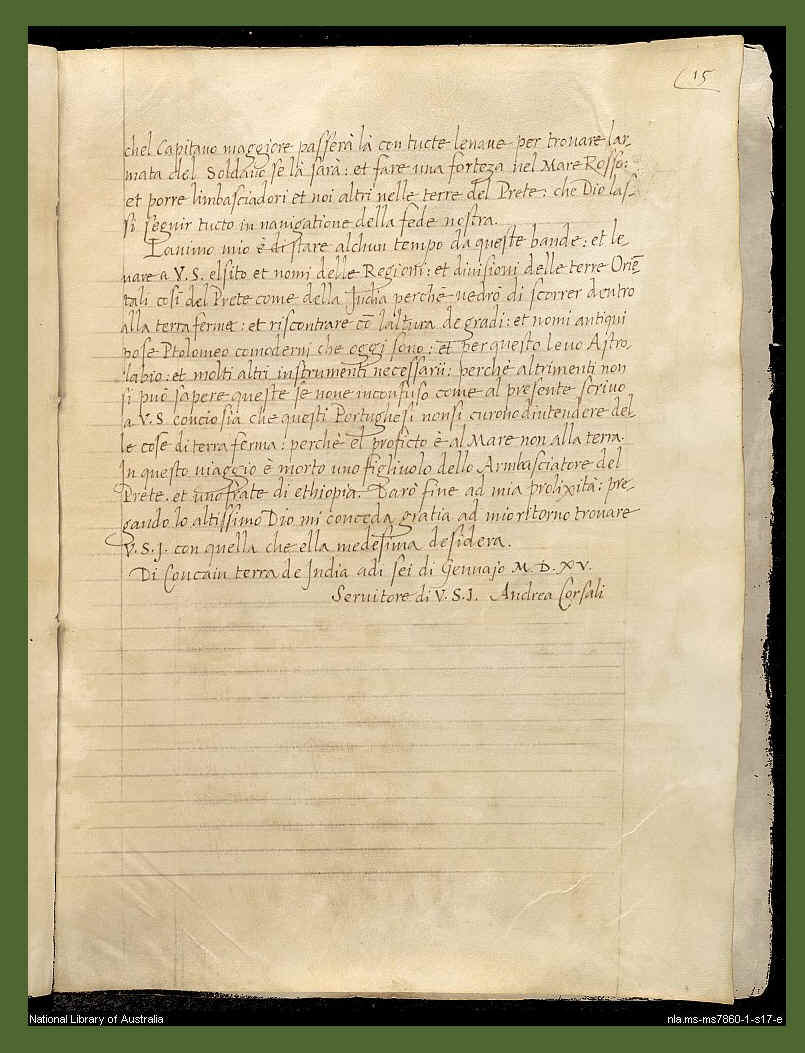 15
chel Capitano maggiore passerà là con tucte lenaue per trovare lar-
mata del Soldano se là sarà: et fare una forteza nel Mare Rosso:
et porre limbasciadori et noi altri nelle terre del Prete: che Dio las-
si seguir tucto in nanigatione della fede nostra.
Lanimo mio è di stare alchun tempo da queste bande: et le
uare a V.S. elsito et nomi delle Regioni: et diuisioni delle terre Oriē
tali cosi del Prete come della India perchè uedrò di scorrer dentro
alla terra ferme: et riscontrare cō laltura de gradi: et nomi antiqui
pose Ptolomeo comoderni che oggi sono: et per questo leuo Astro-
labio: et molti altri instrumenti necessarii: perchè altrimenti non
si può sapere queste se none inconfuso come al presente scriuo
a V.S. conciosia che questi Portughesi nonsi curono dintendere del
le cose di terra ferma: perchè el proficto è al Mare non alla terra.
In questo uiaggio è morto uno figliuolo dello Armbasciatore del
Prete. et uno frate di ethiopia. Darò fine ad mia prolixità: pre-
gando lo altissimo Dio mi conceda gratia ad mio ritorno trouare
V.S.I. con quella che ella medesima desidera.
Di Concain terra de India adi sei di Gennajo M.D.XV.
Seruitore di V.S.I. Andrea Corsali
National Library of Australia
nla.ms-ms7860-1-s17-e